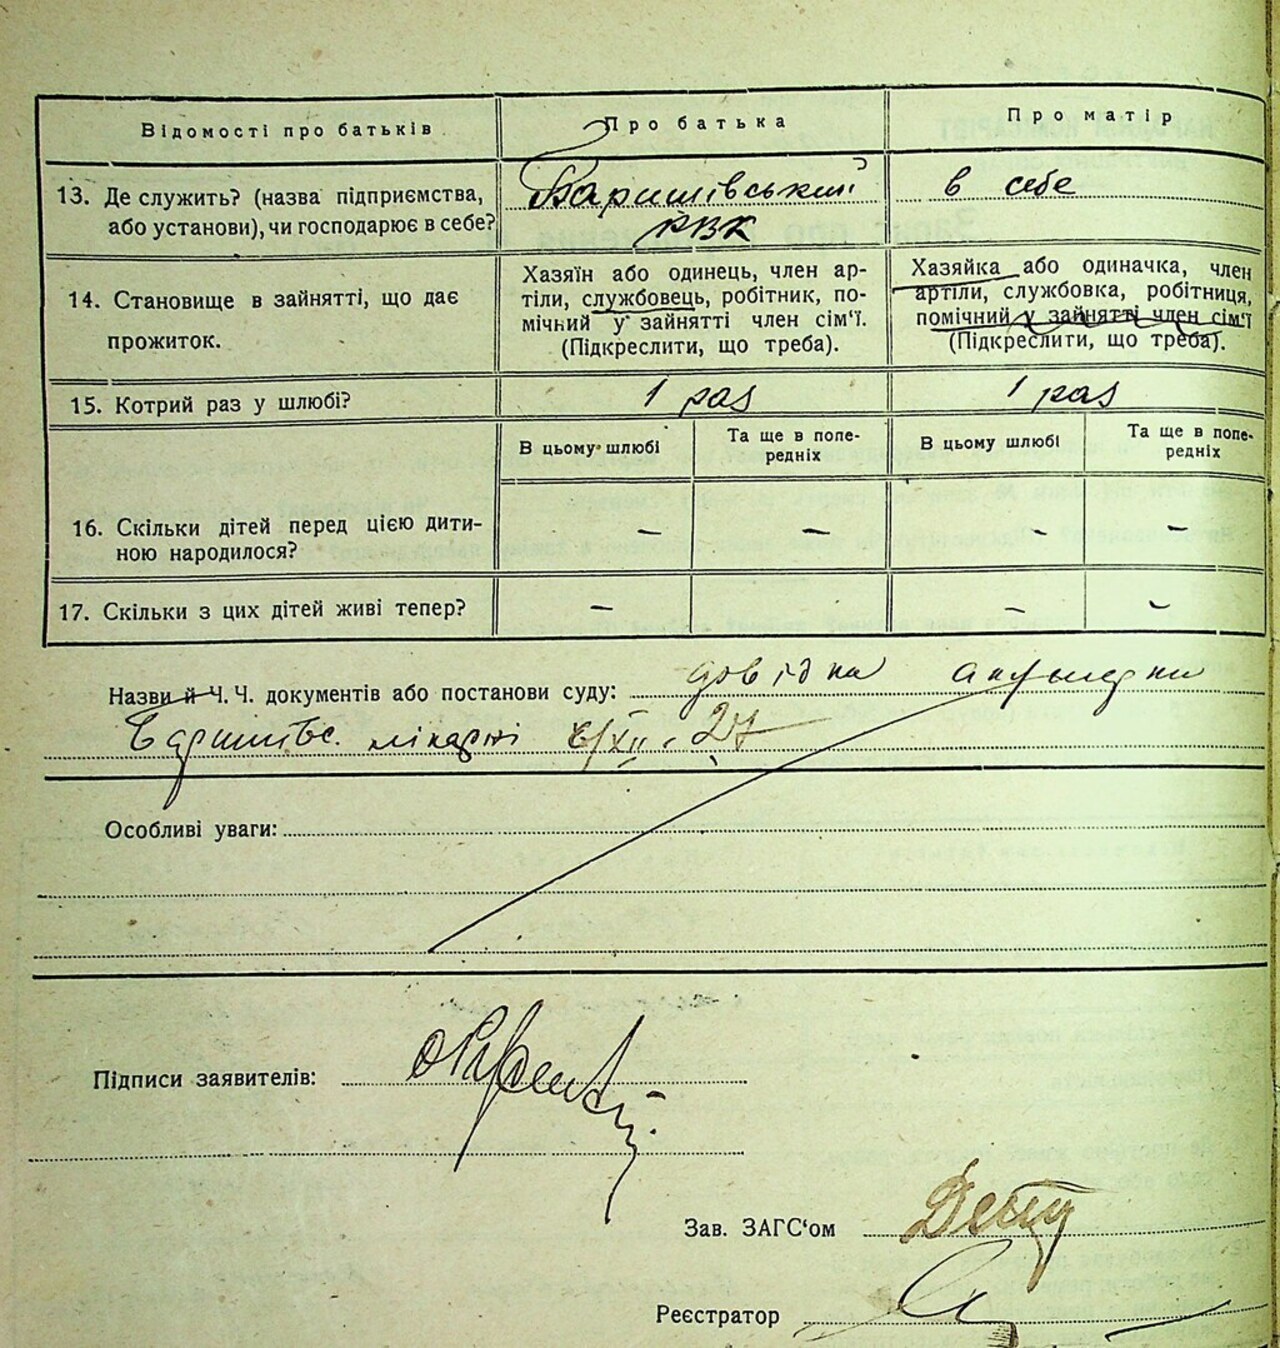 Відомості про батьків
Про батька
Про матір
13. Де служить? (назва підприємства, або установи), чи господарює в себе?
Баришівський
РВК
в себе
14. Становище в зайнятті, що дає
прожиток.
Хазяїн або одинець, член ар-
тіли, службовець, робітник, по-
мічний у зайнятті член сім'ї.
(Підкреслити, що треба).
Хазяйка або одиначка, член
артіли, службовка, робітниця,
помічний у зайнятті член сім'ї
(Підкреслити, що треба).
15. Котрий раз у шлюбі?
1 раз
1 раз
В цьому шлюбі
Та ще в попе-
редніх
В цьому шлюбі
Та ще в попе-
редніх
16. Скільки дітей перед цією дити-
ною народилося?
– – – –
17. Скільки з цих дітей живі тепер?
– – –
Назви й Ч. Ч. документів або постанови суду: довідка акушерки
Баришівс. лікарні XII 27
Особливі уваги:
Підписи заявителів:
Зав. ЗАГС'ом
Реєстратор